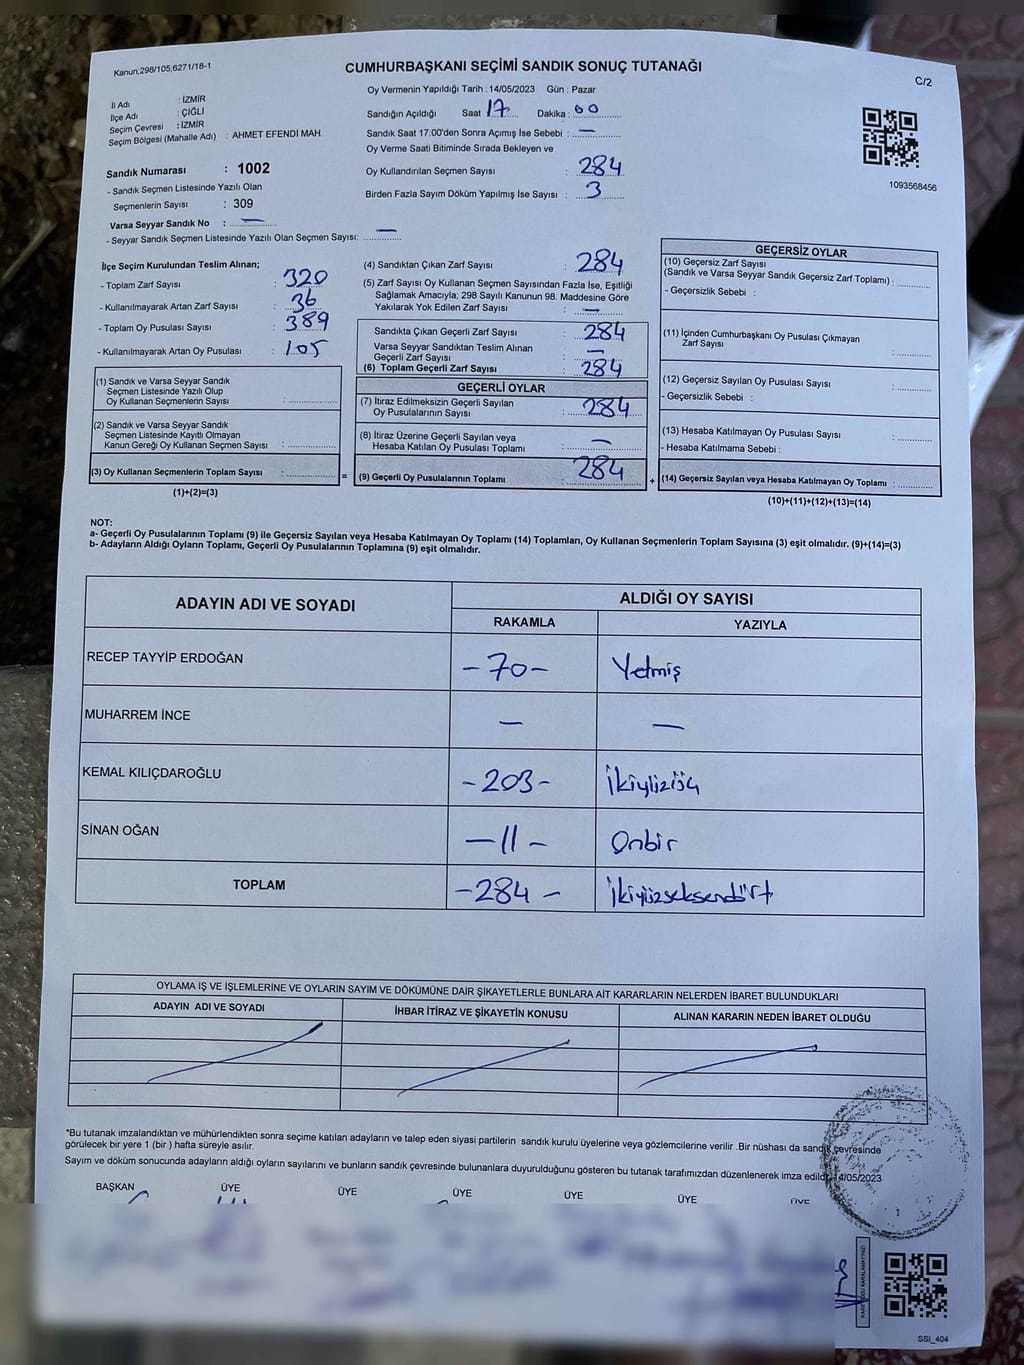 Kanun;298/105;6271/18-1
CUMHURBAŞKANI SEÇİMİ SANDIK SONUÇ TUTANAĞI
C/2
İl Adı : İZMİR
İlçe Adı : ÇİĞLİ
Seçim Çevresi : İZMİR
Seçim Bölgesi (Mahalle Adı) : AHMET EFENDİ MAH.
Sandık Numarası : 1002
- Sandık Seçmen Listesinde Yazılı Olan
Seçmenlerin Sayısı : 309
Varsa Seyyar Sandık No : —
- Seyyar Sandık Seçmen Listesinde Yazılı Olan Seçmen Sayısı: —
Oy Vermenin Yapıldığı Tarih : 14/05/2023 Gün : Pazar
Sandığın Açıldığı Saat 17 Dakika : 00
Sandık Saat 17:00'den Sonra Açımış İse Sebebi : —
Oy Verme Saati Bitiminde Sırada Bekleyen ve
Oy Kullandırılan Seçmen Sayısı : 284
Birden Fazla Sayım Döküm Yapılmış İse Sayısı : 3
1093568456
İlçe Seçim Kurulundan Teslim Alınan;
- Toplam Zarf Sayısı : 320
- Kullanılmayarak Artan Zarf Sayısı : 36
- Toplam Oy Pusulası Sayısı : 389
- Kullanılmayarak Artan Oy Pusulası : 105
(1) Sandık ve Varsa Seyyar Sandık
Seçmen Listesinde Yazılı Olup
Oy Kullanan Seçmenlerin Sayısı :
(2) Sandık ve Varsa Seyyar Sandık
Seçmen Listesinde Kayıtlı Olmayan
Kanun Gereği Oy Kullanan Seçmen Sayısı :
(3) Oy Kullanan Seçmenlerin Toplam Sayısı : =
(1)+(2)=(3)
(4) Sandıktan Çıkan Zarf Sayısı : 284
(5) Zarf Sayısı Oy Kullanan Seçmen Sayısından Fazla İse, Eşitliği
Sağlamak Amacıyla; 298 Sayılı Kanunun 98. Maddesine Göre
Yakılarak Yok Edilen Zarf Sayısı : —
Sandıkta Çıkan Geçerli Zarf Sayısı : 284
Varsa Seyyar Sandıktan Teslim Alınan
Geçerli Zarf Sayısı : —
(6) Toplam Geçerli Zarf Sayısı : 284
GEÇERLİ OYLAR
(7) İtiraz Edilmeksizin Geçerli Sayılan
Oy Pusulalarının Sayısı : 284
(8) İtiraz Üzerine Geçerli Sayılan veya
Hesaba Katılan Oy Pusulası Toplamı : —
(9) Geçerli Oy Pusulalarının Toplamı : 284 +
GEÇERSİZ OYLAR
(10) Geçersiz Zarf Sayısı
(Sandık ve Varsa Seyyar Sandık Geçersiz Zarf Toplamı) :
- Geçersizlik Sebebi :
(11) İçinden Cumhurbaşkanı Oy Pusulası Çıkmayan
Zarf Sayısı :
(12) Geçersiz Sayılan Oy Pusulası Sayısı :
- Geçersizlik Sebebi :
(13) Hesaba Katılmayan Oy Pusulası Sayısı :
- Hesaba Katılmama Sebebi :
(14) Geçersiz Sayılan veya Hesaba Katılmayan Oy Toplamı :
(10)+(11)+(12)+(13)=(14)
NOT:
a- Geçerli Oy Pusulalarının Toplamı (9) ile Geçersiz Sayılan veya Hesaba Katılmayan Oy Toplamı (14) Toplamları, Oy Kullanan Seçmenlerin Toplam Sayısına (3) eşit olmalıdır. (9)+(14)=(3)
b- Adayların Aldığı Oyların Toplamı, Geçerli Oy Pusulalarının Toplamına (9) eşit olmalıdır.
ADAYIN ADI VE SOYADI
ALDIĞI OY SAYISI
RAKAMLA YAZIYLA
RECEP TAYYİP ERDOĞAN -70- Yetmiş
MUHARREM İNCE — —
KEMAL KILIÇDAROĞLU -203- İkiyüzüç
SİNAN OĞAN -11- Onbir
TOPLAM -284- İkiyüzseksendört
OYLAMA İŞ VE İŞLEMLERİNE VE OYLARIN SAYIM VE DÖKÜMÜNE DAİR ŞİKAYETLERLE BUNLARA AİT KARARLARIN NELERDEN İBARET BULUNDUKLARI
ADAYIN ADI VE SOYADI İHBAR İTİRAZ VE ŞİKAYETİN KONUSU ALINAN KARARIN NEDEN İBARET OLDUĞU
*Bu tutanak imzalandıktan ve mühürlendikten sonra seçime katılan adayların ve talep eden siyasi partilerin sandık kurulu üyelerine veya gözlemcilerine verilir .Bir nüshası da sandık çevresinde
görülecek bir yere 1 (bir ) hafta süreyle asılır.
Sayım ve döküm sonucunda adayların aldığı oyların sayılarını ve bunların sandık çevresinde bulunanlara duyurulduğunu gösteren bu tutanak tarafımızdan düzenlenerek imza edildi. 14/05/2023
BAŞKAN ÜYE ÜYE ÜYE ÜYE ÜYE ÜYE
SSI_404